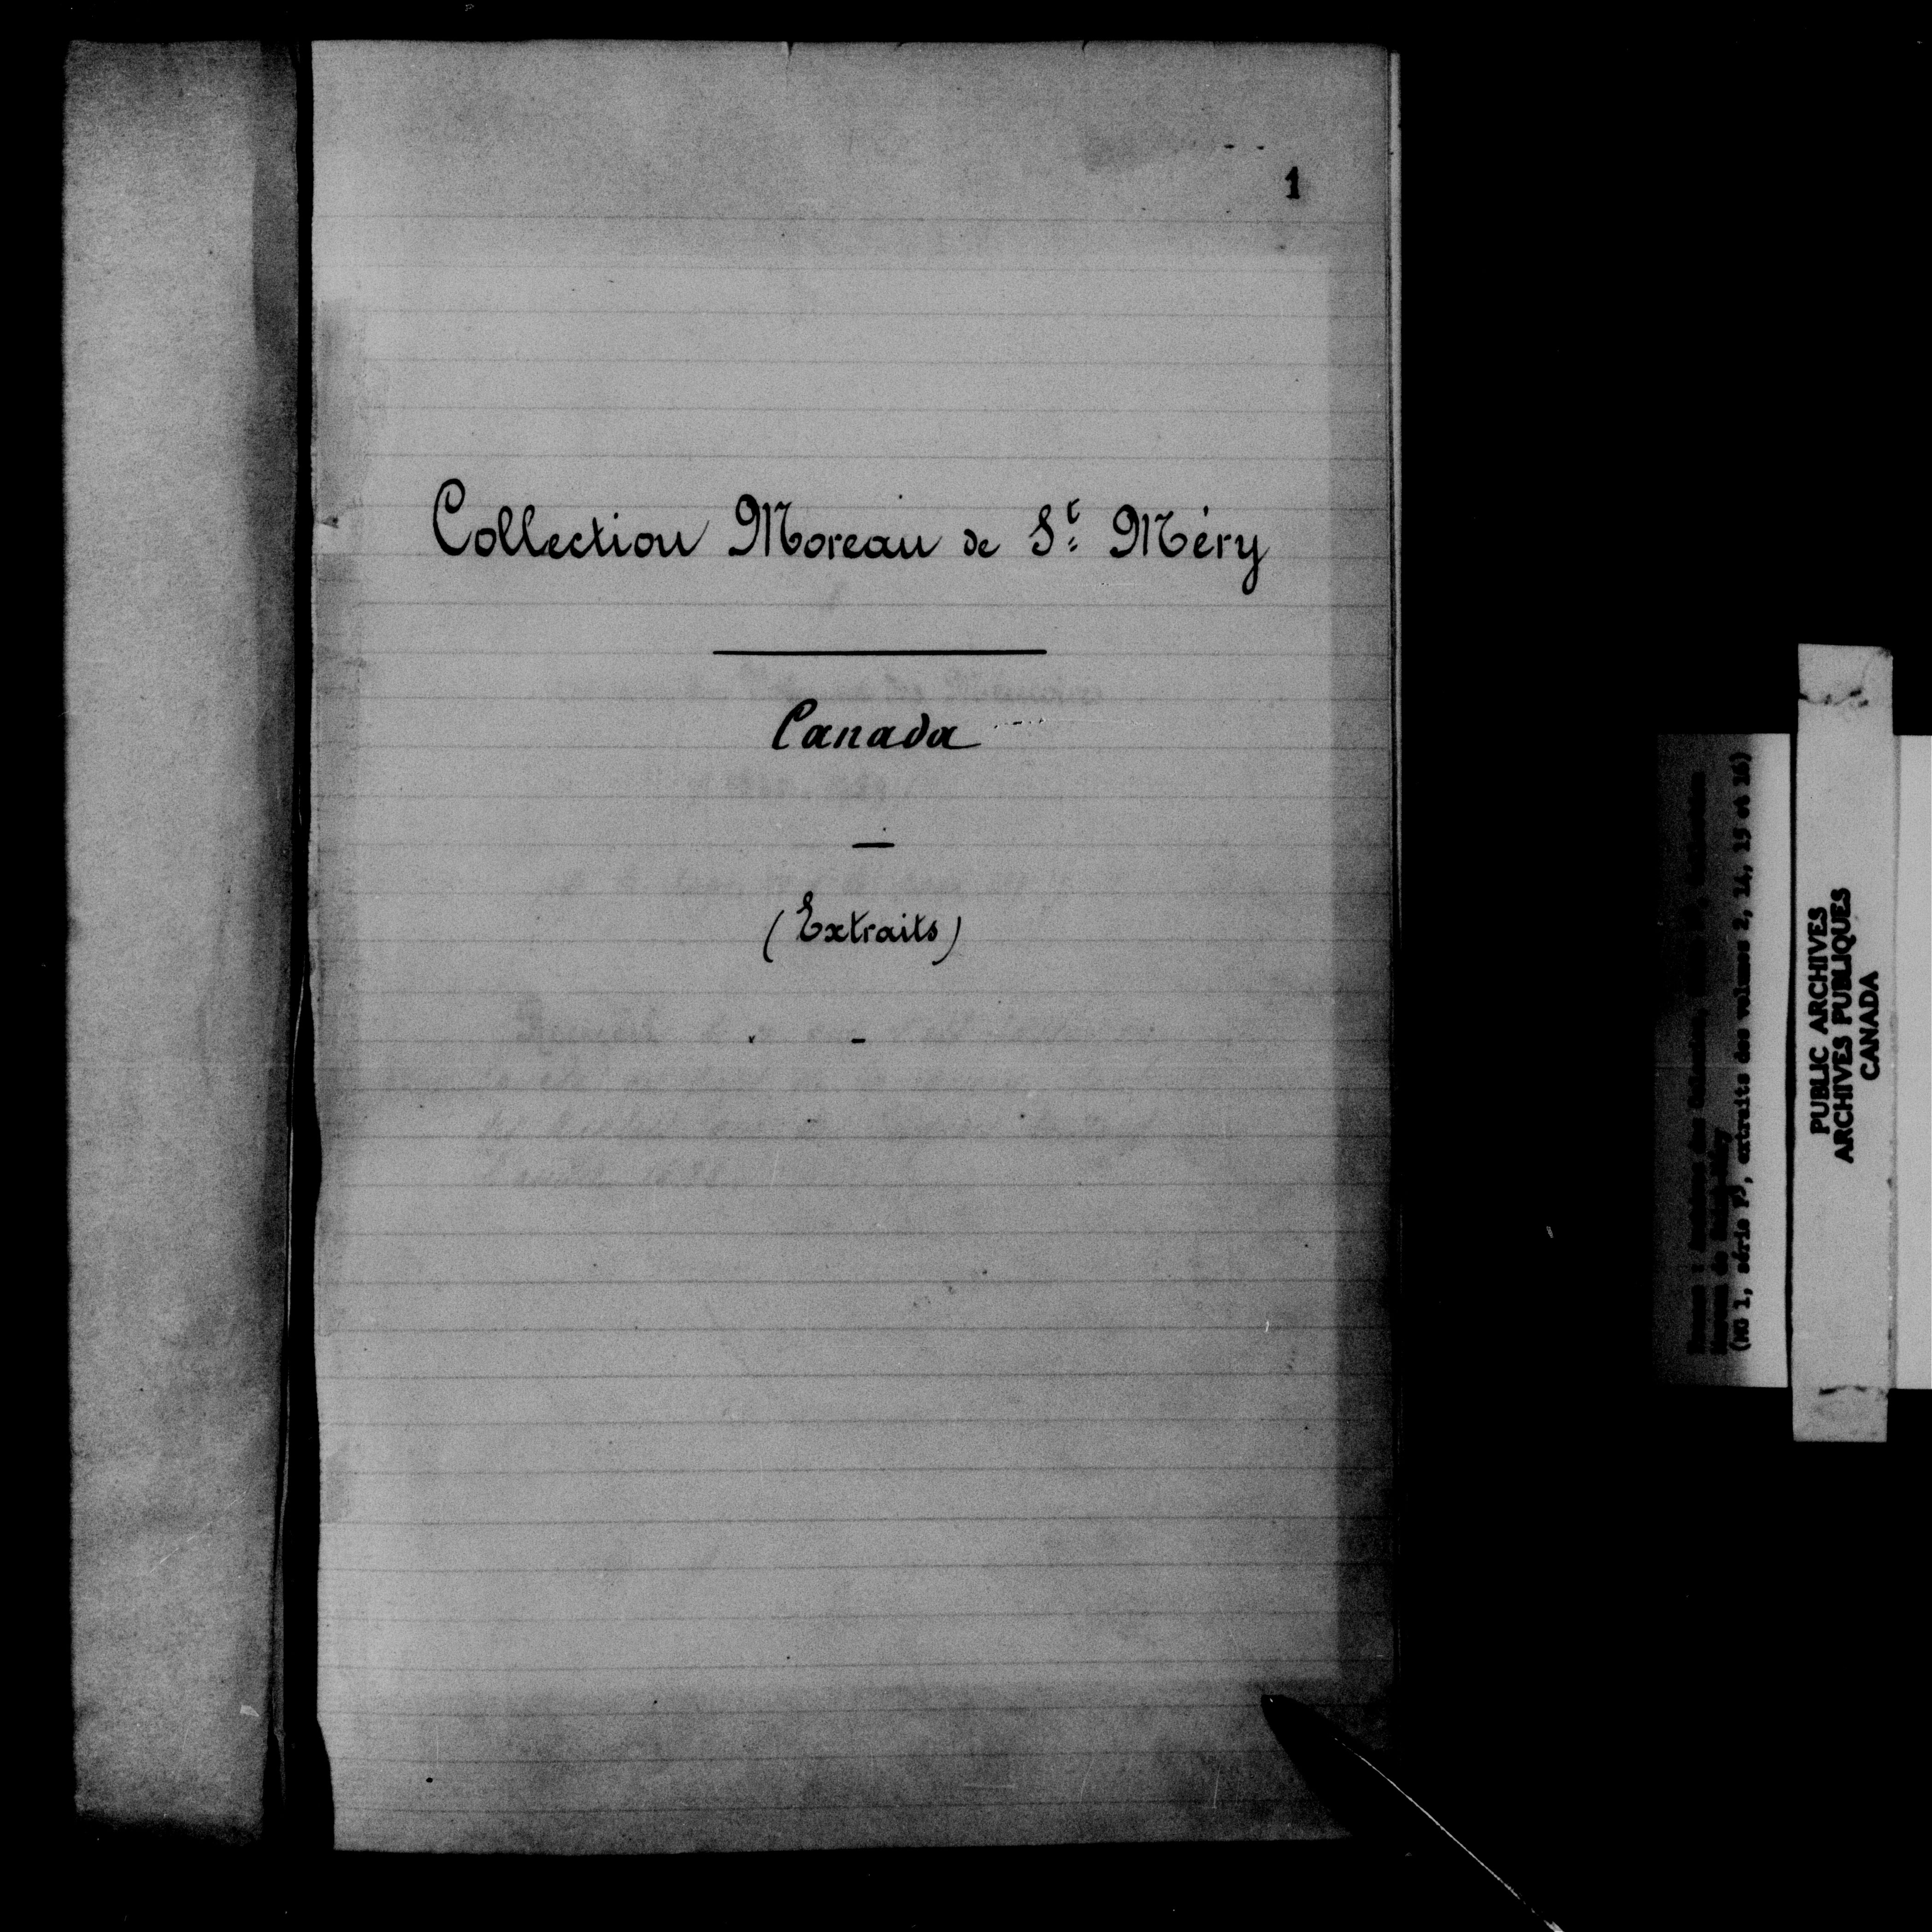 1
Collection Moreau de St Méry
Canada
(Extraits)
des Colonies,
Moreau de Saint-Méry
(MG 1, série F3, extraits des volumes 2, 14, 15 et 16)
PUBLIC ARCHIVES
ARCHIVES PUBLIQUES
CANADA